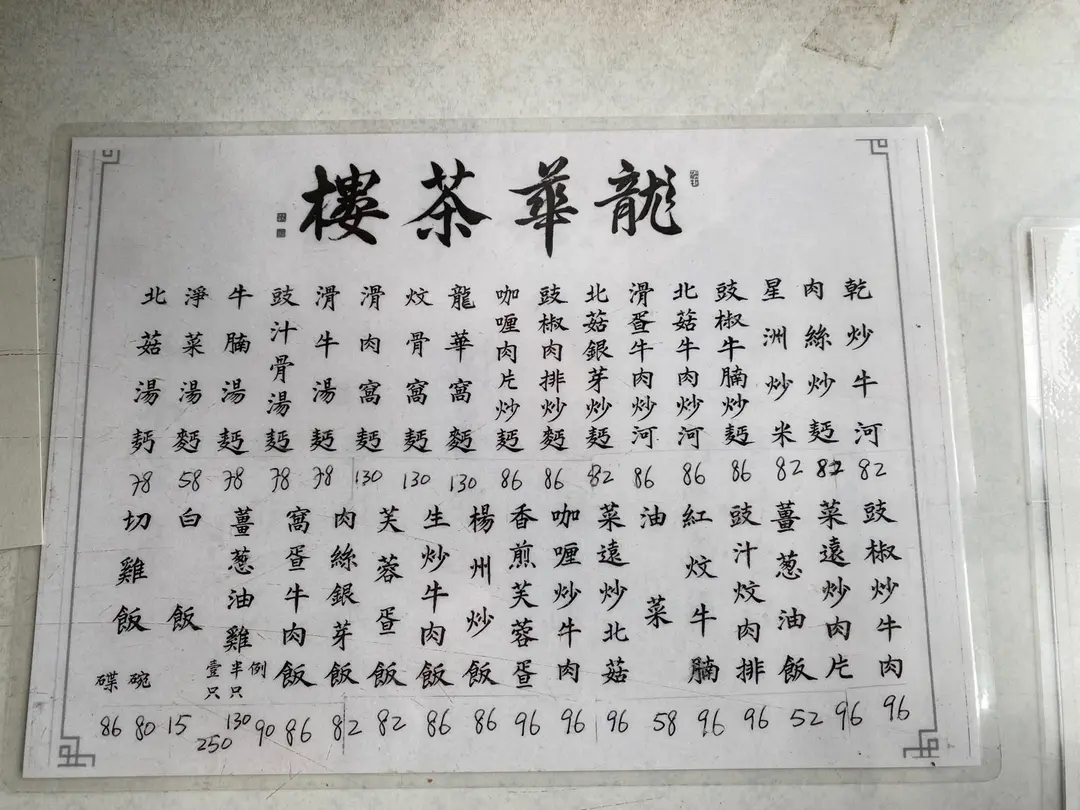 龍華茶樓
乾炒牛河 82
肉絲炒麫 82
星洲炒米 82
豉椒牛腩炒麫 86
北菇牛肉炒河 86
滑蛋牛肉炒河 86
北菇銀芽炒麫 82
豉椒肉排炒麫 86
咖喱肉片炒麫 86
龍華窩麫 130
炆骨窩麫 130
滑肉窩麫 130
滑牛湯麫 78
豉汁骨湯麫 78
牛腩湯麫 78
淨菜湯麫 58
北菇湯麫 78
豉椒炒牛肉 96
菜遠炒肉片 96
薑葱油飯 52
豉汁炆肉排 96
紅炆牛腩 96
油菜 58
菜遠炒北菇 96
咖喱炒牛肉 96
香煎芙蓉蛋 96
楊州炒飯 86
生炒牛肉飯 86
芙蓉蛋飯 82
肉絲銀芽飯 82
窩蛋牛肉飯 86
薑葱油雞 例 90 半只 130 壹只 250
白飯 15
切雞飯 碗 80 碟 86